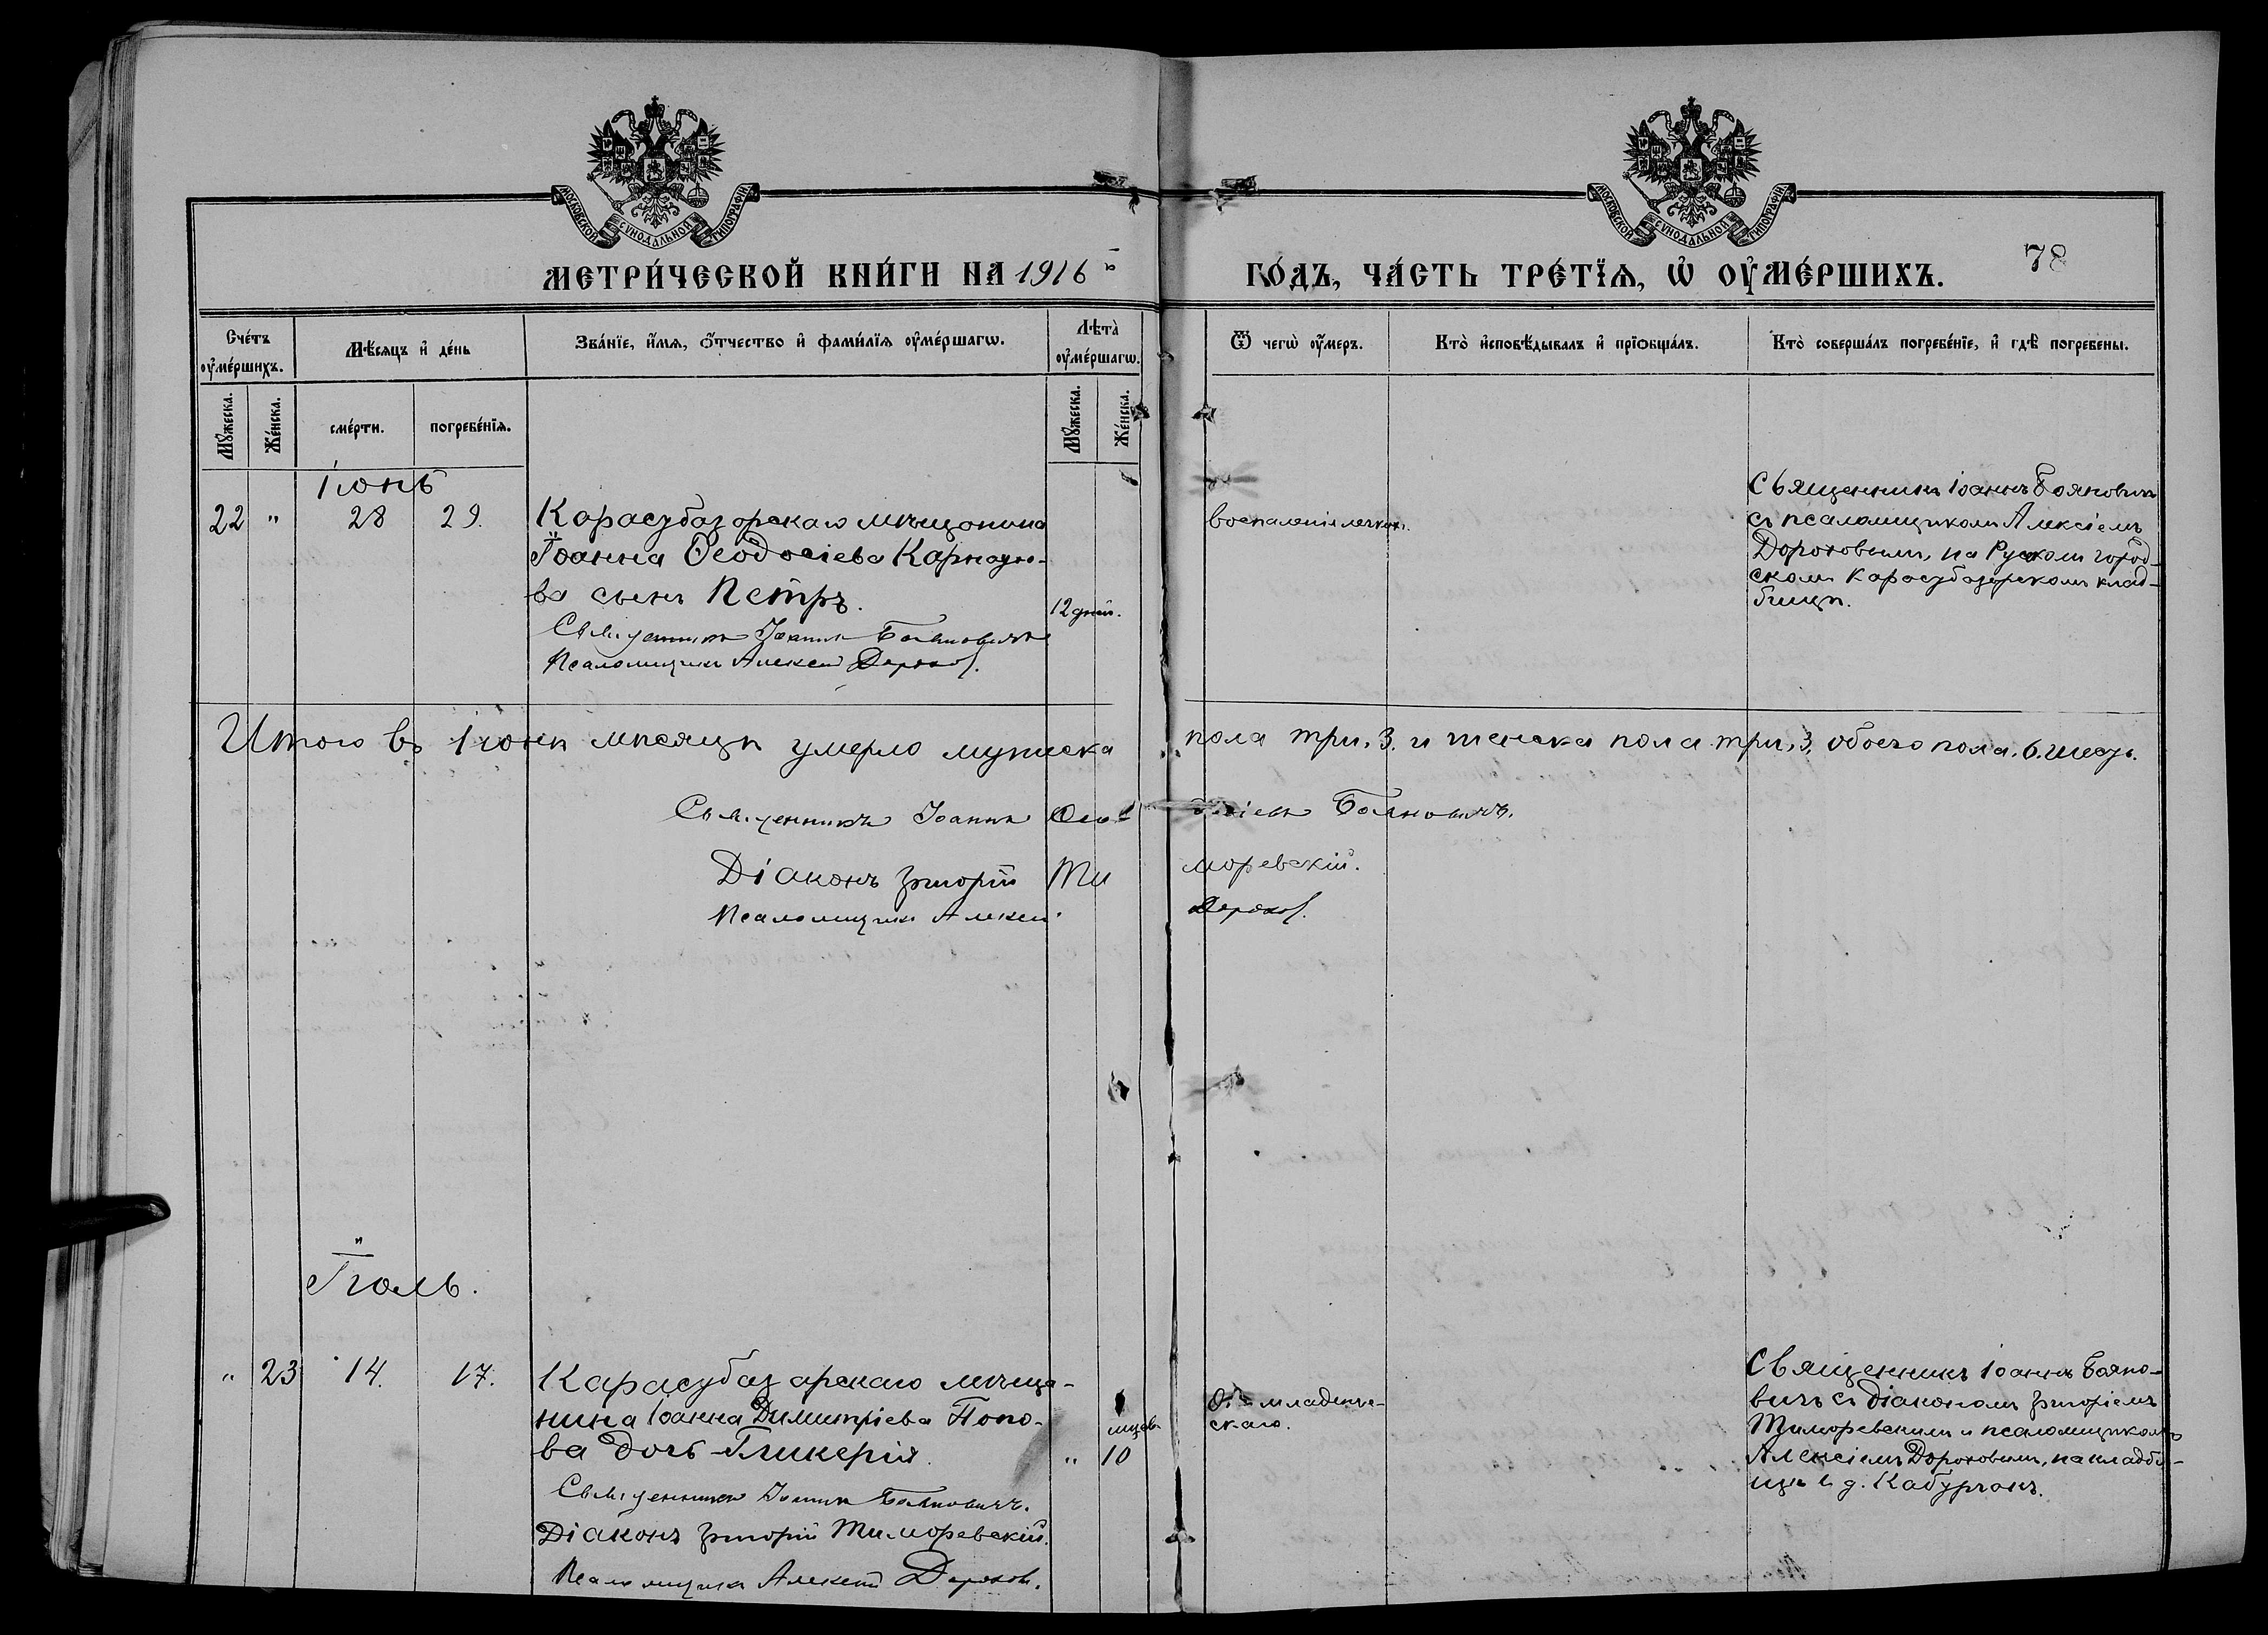 МОСКОВСКОЙ СѴНОДАЛЬНОЙ ТИПОГРАФІИ
МОСКОВСКОЙ СѴНОДАЛЬНОЙ ТИПОГРАФІИ
МЕТРИ́ЧЕСКОЙ КНИ́ГИ НА 1916 ГО́ДЪ, ЧА́СТЬ ТРЕ́ТЇѦ, Ѡ҆ ОУ҆МЕ́РШИХЪ.
78
Сче́тъ оу҆ме́ршихъ.
Мѣ́сяцъ и҆ де́нь
Зва́нїе, и҆́мѧ, ѻ҆́тчество и҆ фами́лїѧ оу҆ме́ршагѡ.
Лѣта̀ оу҆ме́ршагѡ.
Ѿ чегѡ̀ оу҆́меръ.
Кто̀ и҆сповѣ́дывалъ и҆ прїѻбща́лъ.
Кто̀ соверша́лъ погребе́нїе, и҆ гдѣ̀ погребены.
Мꙋ́жеска.
Же́нска.
сме́рти.
погребе́нїѧ.
Мꙋ́жеска.
Же́нска.
Іюнь
22 " 28 29.
Карасубазарскаго мѣщанина
Іоанна Ѳеодосіева Карнаухо-
ва сынъ Петръ.
12 дней.
Священникъ Іоаннъ Бояновичъ
Псаломщикъ Алексей Дорохов.
воспаленія легкихъ.
Священникъ Іоаннъ Бояновичъ
съ псаломщикомъ Алексіемъ
Дороховымъ, на Русском город-
скомъ Карасубазарскомъ клад-
бищѣ.
Итого въ Іюнѣ мѣсяцѣ умерло мужеска пола три, 3. и женска пола три, 3. обоего пола. 6. шесть.
Священникъ Іоаннъ Бояновичъ.
Діаконъ Григорій Тиморевскій.
Псаломщикъ Алексей Дорохов.
Іюль.
" 23 14. 17.
Карасубазарскаго мѣща-
нина Іоанна Димитріева Попо-
ва дочь Гликерія.
мцев.
" 10
Священникъ Іоаннъ Бояновичъ.
Діаконъ Григорій Тиморевскій.
Псаломщикъ Алексей Дорохов.
Отъ младенче-
скаго.
Священникъ Іоаннъ Бояно-
вичъ съ діакономъ Григоріемъ
Тиморевскимъ и псаломщикомъ
Алексіемъ Дороховымъ, на кладби-
щѣ въ д. Кабурчакъ.